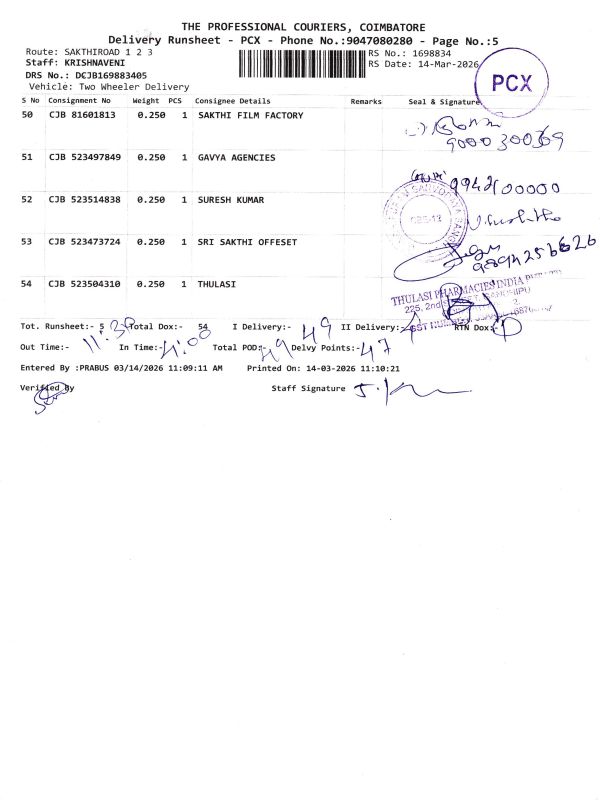 THE PROFESSIONAL COURIERS, COIMBATORE
Delivery Runsheet - PCX - Phone No.:9047080280 - Page No.:5
Route: SAKTHIROAD 1 2 3
RS No.: 1698834
Staff: KRISHNAVENI
RS Date: 14-Mar-2026
PCX
DRS No.: DCJB169883405
Vehicle: Two Wheeler Delivery
S No Consignment No Weight PCS Consignee Details Remarks Seal & Signature
50 CJB 81601813 0.250 1 SAKTHI FILM FACTORY
9000300369
51 CJB 523497849 0.250 1 GAVYA AGENCIES
9942100000
52 CJB 523514838 0.250 1 SURESH KUMAR
53 CJB 523473724 0.250 1 SRI SAKTHI OFFESET
9894256626
54 CJB 523504310 0.250 1 THULASI
THULASI PHARMACIES INDIA PVT LTD
225, 2nd
Tot. Runsheet:- 5 Total Dox:- 54 I Delivery:- 49 II Delivery:- RTN Dox:-
Out Time:- 11:30 In Time:- 4:00 Total POD:- 49 Delvy Points:- 47
Entered By :PRABUS 03/14/2026 11:09:11 AM Printed On: 14-03-2026 11:10:21
Verified By Staff Signature